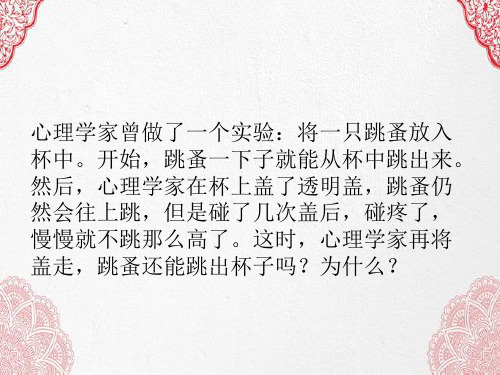 心理学家曾做了一个实验：将一只跳蚤放入
杯中。开始，跳蚤一下子就能从杯中跳出来。
然后，心理学家在杯上盖了透明盖，跳蚤仍
然会往上跳，但是碰了几次盖后，碰疼了，
慢慢就不跳那么高了。这时，心理学家再将
盖走，跳蚤还能跳出杯子吗？为什么？